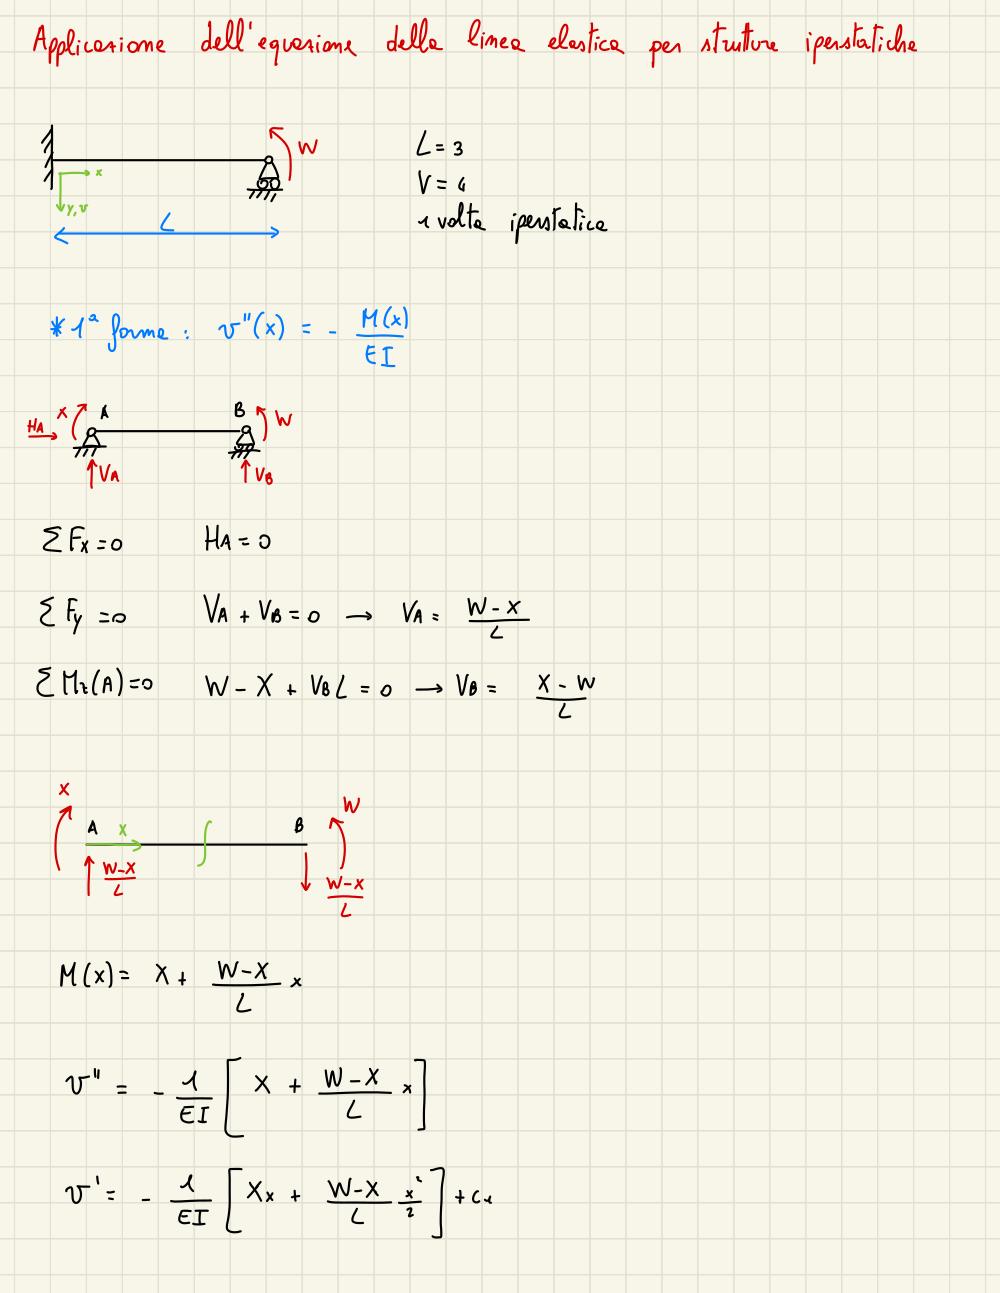 Applicazione dell'equazione della linea elastica per strutture iperstatiche
W
L = 3
x
V = 4
y, v
1 volta iperstatica
L
* 1ª forma : v''(x) = - M(x)/EI
HA X A B W
VA VB
ΣFx = 0 HA = 0
ΣFy = 0 VA + VB = 0 → VA = (W - X)/L
ΣMz(A) = 0 W - X + VB L = 0 → VB = (X - W)/L
X W
A x B
(W-X)/L (W-X)/L
M(x) = X + (W-X)/L x
v'' = - 1/EI [ X + (W-X)/L x ]
v' = - 1/EI [ Xx + (W-X)/L x²/2 ] + C1